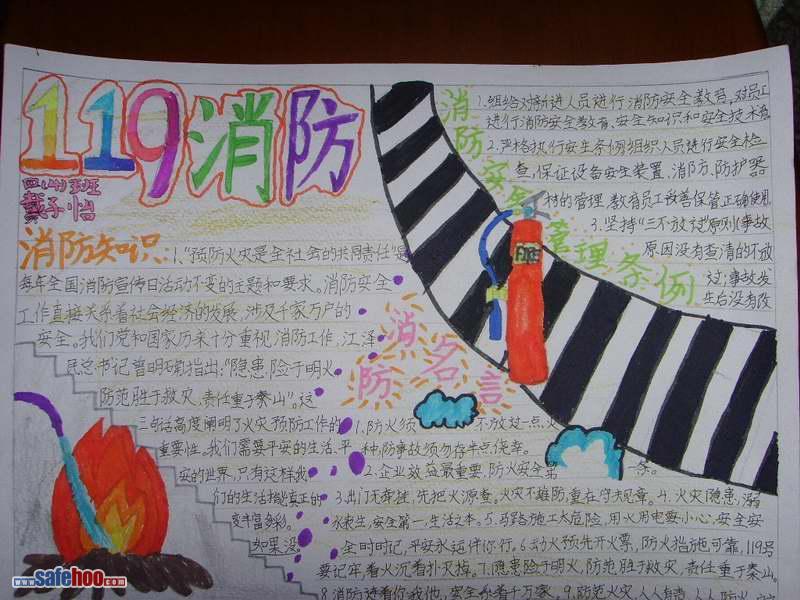 119消防
四(4)班
戴子怡
消防知识:
1."预防火灾是全社会的共同责任"是
每年全国消防宣传日活动不变的主题和要求。消防安全
工作直接关系着社会经济的发展,涉及千家万户的
安全。我们党和国家历来十分重视消防工作,江泽
民总书记曾明确指出:"隐患,险于明火
防范胜于救灾,责任重于泰山"。这
三句话高度阐明了火灾预防工作的
重要性。我们需要平安的生活、平
安的世界,只有这样我
们的生活才能真正的
丰富多彩。
如果没
消防安全管理条例
1.组给对新进人员进行消防安全教育,对员工
进行消防安全教育、安全知识和安全技术
2.严格执行安全条例组织人员进行安全检
查,保证设备安全装置、消防、防护器
材的管理,教育员工妥善保管正确使用
3.坚持"三不放过"原则(事故
原因没有查清的不放
过;事故发
生后没有改
消防名言
1.防火须 不放过一点火
种,防事故须勿存半点侥幸。
2.企业效益最重要,防火安全第一条。
3.出门无牵挂,先把火源查。火灾不难防,重在守规章。4.火灾隐患,
安全第一,生活之本。5.马路施工太危险,用火用电要小心,安全安
全时时记,平安永远伴你行。6.动火预先开火票,防火措施可靠,119号
要记牢,着火沉着扑灭掉。7.隐患险于明火,防范胜于救灾,责任重于泰山。
8.消防连着你我他,安全系着千万家。9.防范火灾,人人有责,人人防火,
www.safehoo.com